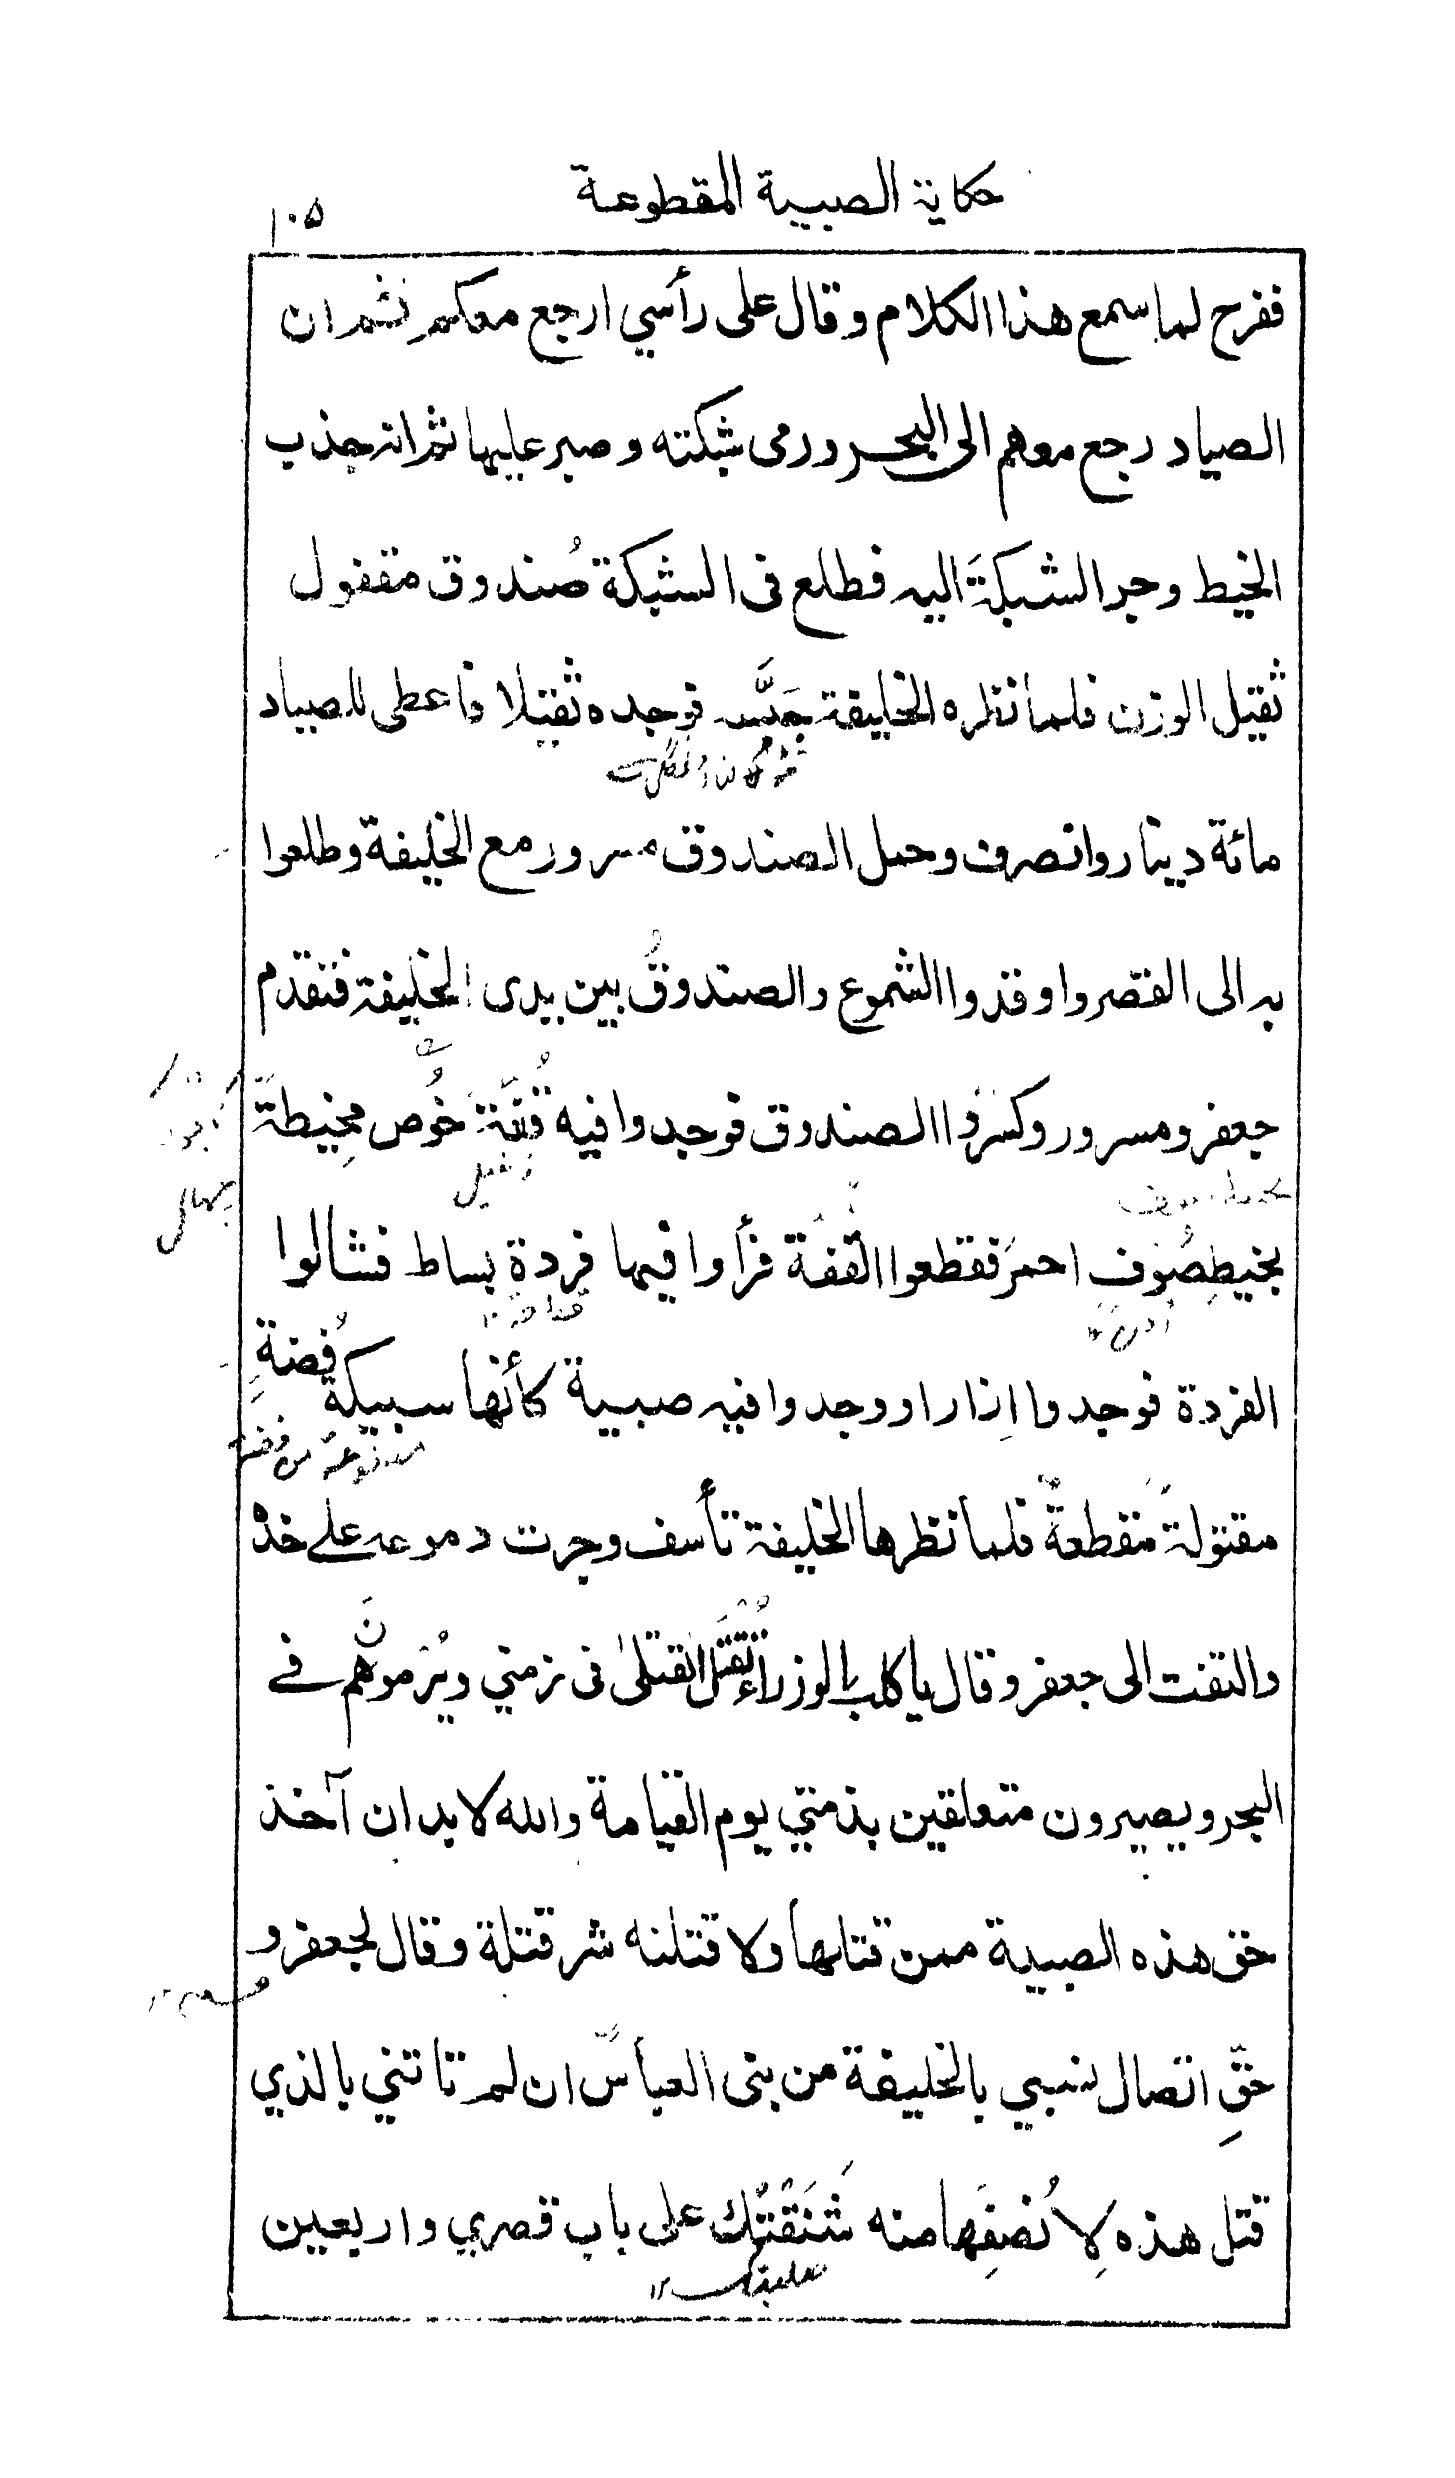 حكاية الصبية المقطوعة
١٠٥
ففرح لما سمع هذا الكلام وقال على رأسي ارجع معكم ثم ان
الصياد رجع معهم الى البحر ورمى شبكته وصبر عليها ثم انه جذب
الخيط وجر الشبكةَ اليه فطلع فى الشبكة صُندوق مقفول
ثقيل الوزن فلما نظره الخليفة جَسَّه فوجده ثقيلا فاعطى للصياد
مائة دينار وانصرف وحمل الصندوق مسرور مع الخليفة وطلعوا
به الى القصر واوقدوا الشموع والصندوقُ بين يدى الخليفة فتقدم
جعفر ومسرور وكسروا الصندوق فوجدوا فيه قُفَّةَ خُوص مِخيطةً
بخيطِ صُوف احمرَ فقطعوا القفة فرأوا فيها فردة بساط فشالوا
الفردة فوجدوا اِزارا ووجدوا فيه صبية كأنها سبيكة فُضةِ
مقتولة مَقطعةٌ فلما نظرها الخليفة تأسف وجرت دموعه على خده
والتفت الى جعفر وقال ياكلب بالوزراء تُقْتَل القتلىٰ فى زمني ويُرْمونَهم في
البحر ويصيرون متعلقين بذمتي يوم القيامة والله لا بد ان آخذ
حق هذه الصبية ممن قتلها ولا قتلنه شر قتلة وقال لجعفر و
حقِّ اتصال نسبي بالخليفة من بنى العباس ان لم تاتني بالذي
قتل هذه لِاُنصِفَها منه شَنَقْتُك على باب قصري واربعين